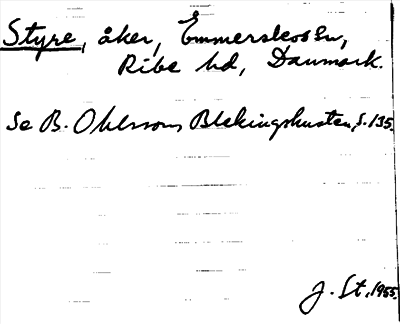 Styre, åker, Emmerskov sn,
Ribe hd, Danmark.
Se B. Ohlsson, Blekingskusten, s. 135.
J. St. 1955.